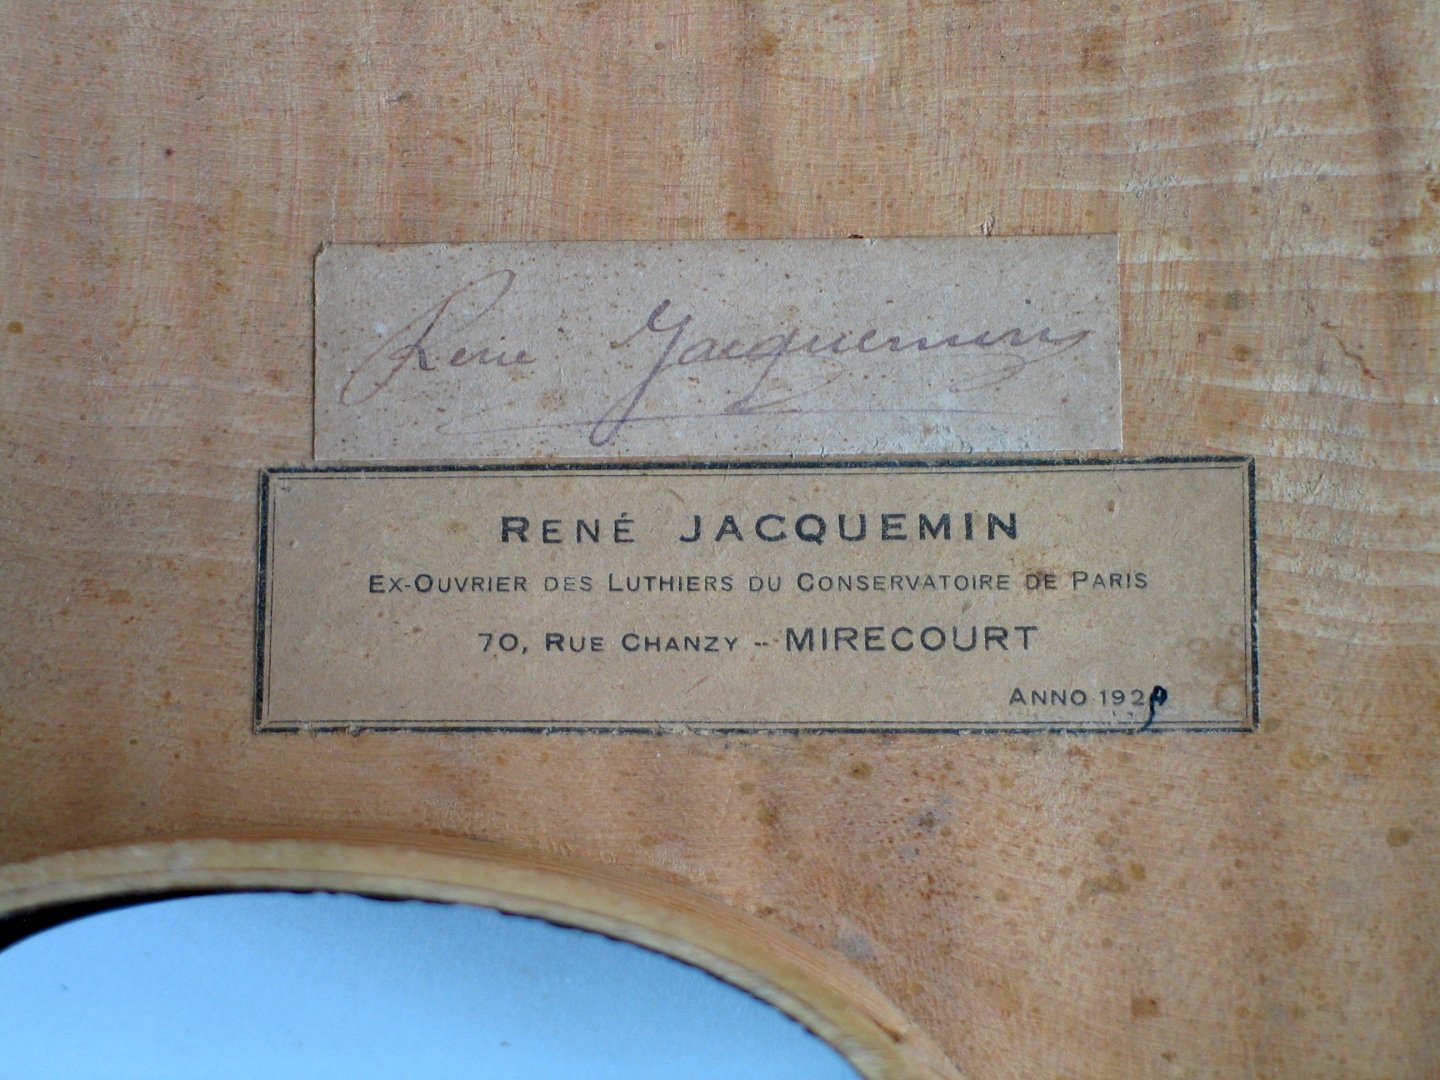 René Jacquemin
RENÉ JACQUEMIN
EX-OUVRIER DES LUTHIERS DU CONSERVATOIRE DE PARIS
70, RUE CHANZY -- MIRECOURT
ANNO 192